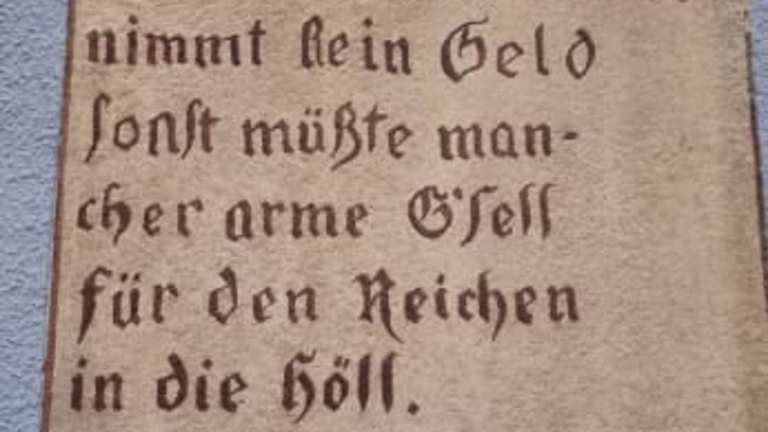 nimmt kein Geld
sonst müßte man-
cher arme G'sell
für den Reichen
in die Höll.